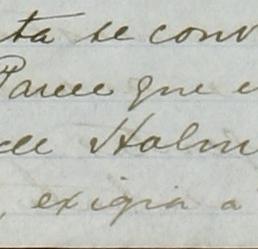 ta se conv
Parece que e
de Holm
, exigia a